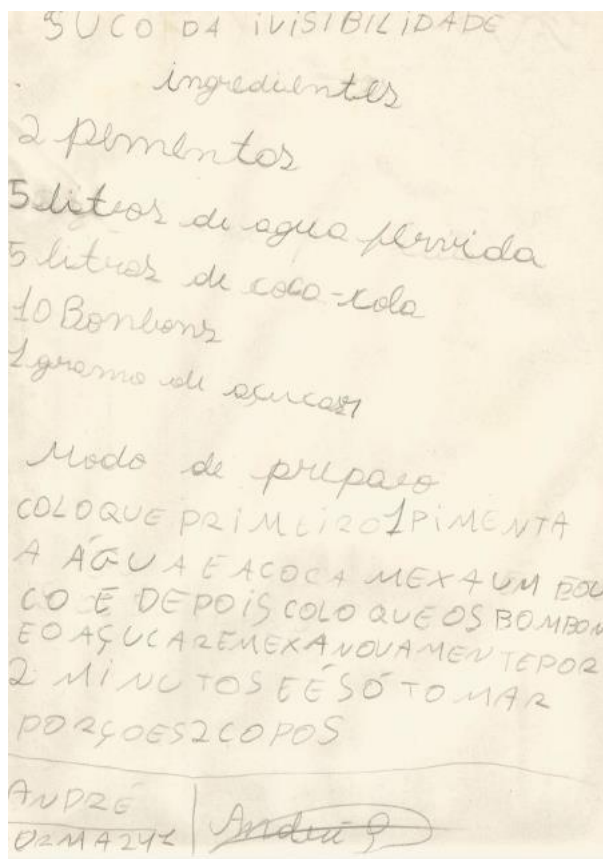 SUCO DA IVISIBILIDADE
ingredientes
2 pementas
5 litros de agua fervida
5 litros de coca-cola
10 Bombons
1 grama de açucar
Modo de preparo
COLOQUE PRIMEIRO 1 PIMENTA
A ÁGUA E A COCA MEXA UM POU
CO E DEPOIS COLOQUE OS BOMBON
E O AÇUCAR E MEXA NOVAMENTE POR
2 MINUTOS E É SÓ TOMAR
PORÇOES 2 COPOS
ANDRÉ
André